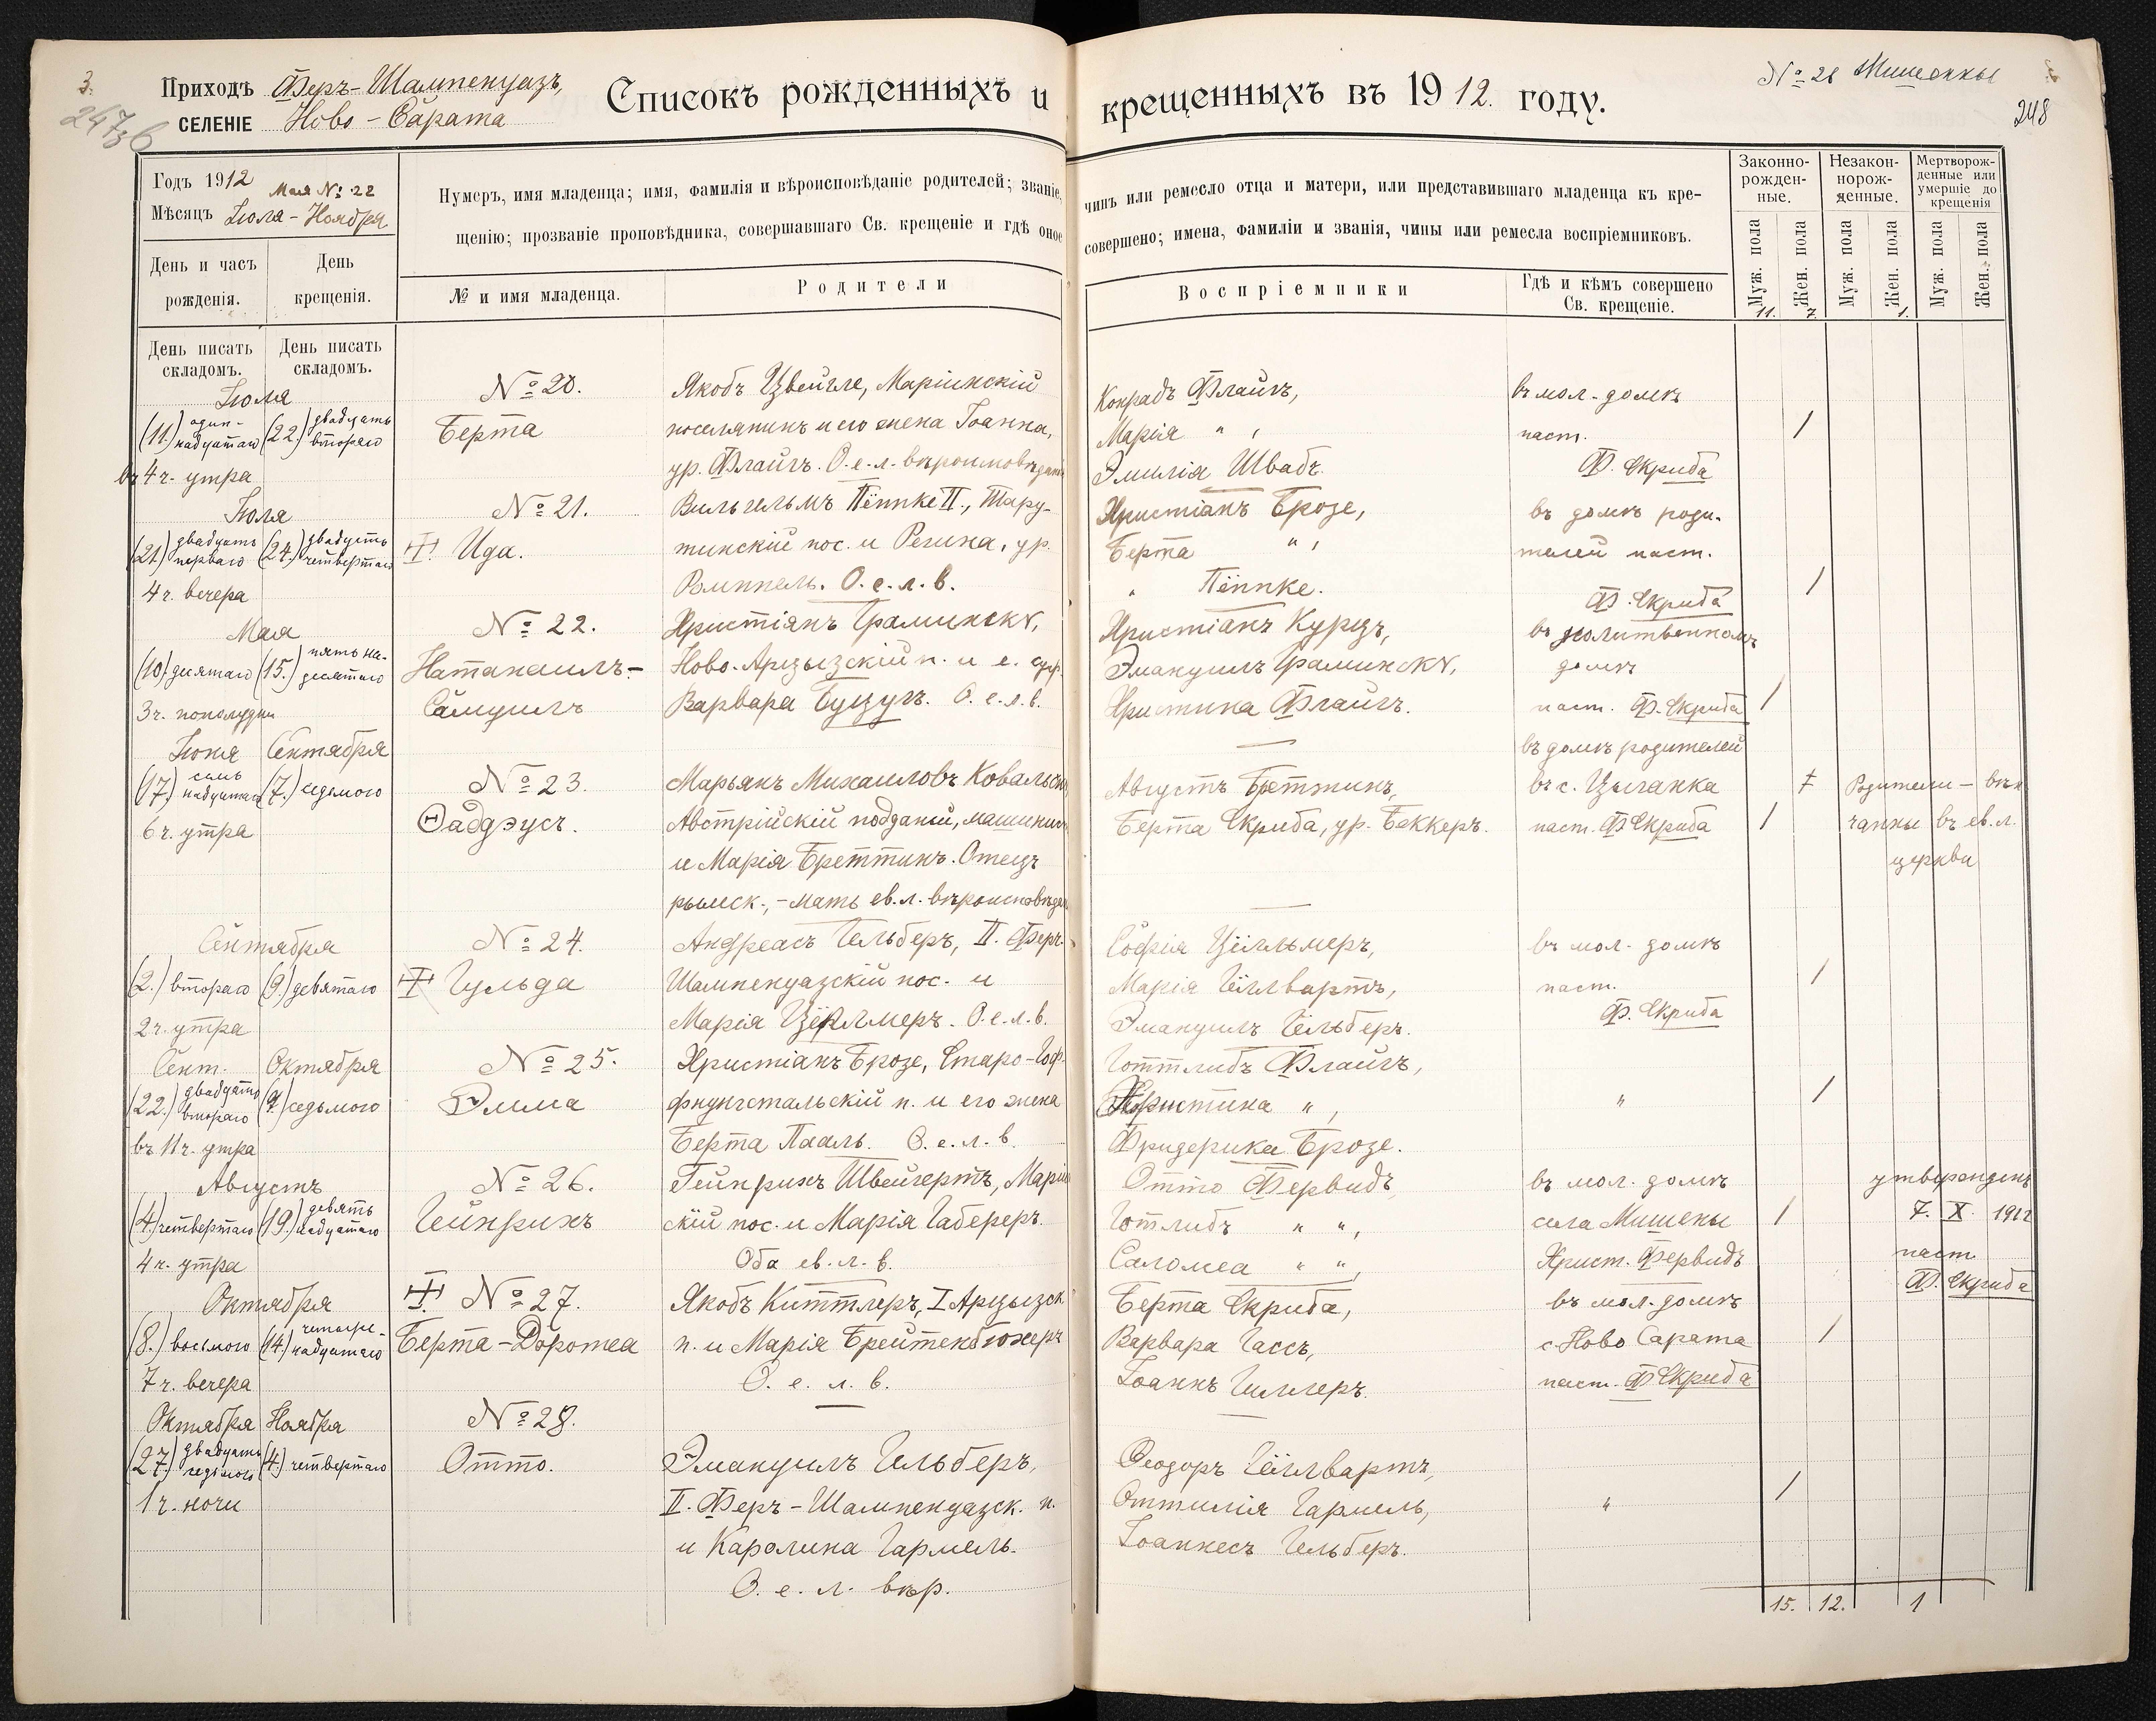 3.
Приходъ Феръ-Шампенуазъ,
247 зб
СЕЛЕНІЕ Ново-Сарата
Списокъ рожденныхъ и крещенныхъ въ 1912. году.
№ 28
248
Годъ 1912 Мая № 22
Мѣсяцъ Іюля - Ноября
Нумеръ, имя младенца; имя, фамилія и вѣроисповѣданіе родителей; званіе,
щенію; прозваніе проповѣдника, совершавшаго Св. крещеніе и гдѣ оное
День и часъ рожденія.
День крещенія.
№ и имя младенца.
Родители
чинъ или ремесло отца и матери, или представившаго младенца къ кре-
совершено; имена, фамиліи и званія, чины или ремесла воспріемниковъ.
Воспріемники
Гдѣ и кѣмъ совершено
Св. крещеніе.
Законно-
рожден-
ные.
Незакон-
норож-
денные.
Мертворож-
денные или
умершіе до
крещенія
Муж. пола 11.
Жен. пола 7.
Муж. пола
Жен. пола 1.
Муж. пола
Жен. пола
День писать складомъ.
День писать складомъ.
Іюля
(11.) один-надцатаго (22.) двадцать втораго
въ 4 ч. утра
№ 20.
Берта
Якобъ Цвейгле, Маріинскій
поселянинъ и его жена Іоанна,
ур. Флайгъ. О.е.л. вѣроисповѣдан
Конрадъ Флайгъ,
Марія " ,
Эмилія Швабъ.
въ мол-домѣ
паст.
Ф. Скриба
/
Іюля
(21.) двадцать перваго (24.) двадцать четвертаго
4 ч. вечера
№ 21.
Ида.
Вильгельмъ Пёппке II., Тару-
тинскій пос. и Регина, ур.
Роmппель. О.е.л.в.
Христіанъ Брозе,
Берта " ,
" Пёппке.
въ домѣ роди-
телей паст.
Ф. Скриба
/
Мая
(10.) десятаго (15.) пятьна-десятаго
3 ч. пополудни
№ 22.
Натанаилъ-
Самуилъ
Христіянъ Граминскѵ,
Ново-Арцызскій п. и е. супр.
Варвара Буцугъ. О.е.л.в.
Христіанъ Курцъ,
Эмануилъ Граминскѵ,
Христина Флайгъ.
въ молитвенномъ
домѣ
паст. Ф. Скриба
/
Іюня Сентября
(17.) семь надцатаго (7.) седьмого
6 ч. утра
№ 23.
Ѳаддэусъ.
Марьянъ Михаиловъ Ковальск
Австрійскій подданый, машинист
и Марія Бреттинъ. Отецъ
рымск., - мать ев.л. вѣроисповѣдан
Августъ Бреттинъ,
Берта Скриба, ур. Беккеръ.
въ домѣ родителей
въ с. Цыганка
паст. Ф Скриба
/
Родители - вѣн
чанны въ ев.л.
церкви
Сентября
(2.) втораго (9.) девятаго
2 ч. утра
№ 24.
Гульда
Андреасъ Гельберъ, II. Феръ-
Шампенуазскій пос. и
Марія Цёллмеръ. О.е.л.в.
Софія Цёлльмеръ,
Марія Гёллвартъ,
Эмануилъ Гельберъ.
въ мол-домѣ
паст.
Ф. Скриба
/
Сент. Октября
(22.) двадцать втораго (7.) седьмого
въ 11 ч. утра
№ 25.
Эмма
Христіанъ Брозе, Старо-Гоф-
фнунгстальскій п. и его жена
Берта Пааль. О.е.л.в.
Готтлибъ Флайгъ,
Христина " ,
Фридерика Брозе.
"
/
Августъ
(4.) четвертаго (19.) девять надцатаго
4 ч. утра
№ 26.
Гейнрихъ
Гейнрихъ Швейгертъ, Маріин
скій пос. и Марія Габереръ.
Оба ев.л.в.
Отто Фервидъ,
Готлибъ " ",
Саломеа " ",
въ мол. домѣ
села Мишены
Христ. Фервидъ
/
утвержденъ
7. X. 1912
паст.
Ф. Скриба
Октября
(8.) восьмого (14.) четыре-надцатаго
7 ч. вечера
№ 27.
Берта-Доротеа
Якобъ Киттлеръ, I Арцызск
п. и Марія Брейтенбюхеръ
О.е.л.в.
Берта Скриба,
Варвара Гассъ,
Іоаннъ Гиллеръ.
въ мол. домѣ
с. Ново Сарата
паст. Ф Скриба
/
Октября Ноября
(27.) двадцать седьмого (4.) четвертаго
1 ч. ночи
№ 28.
Отто.
Эмануилъ Гельберъ,
II. Феръ-Шампенуазск. п.
и Каролина Гармель.
О.е.л. вѣр.
Ѳеодоръ Гёллвартъ,
Оттилія Гармель,
Іоаннесъ Гельберъ.
"
/
15. 12. 1